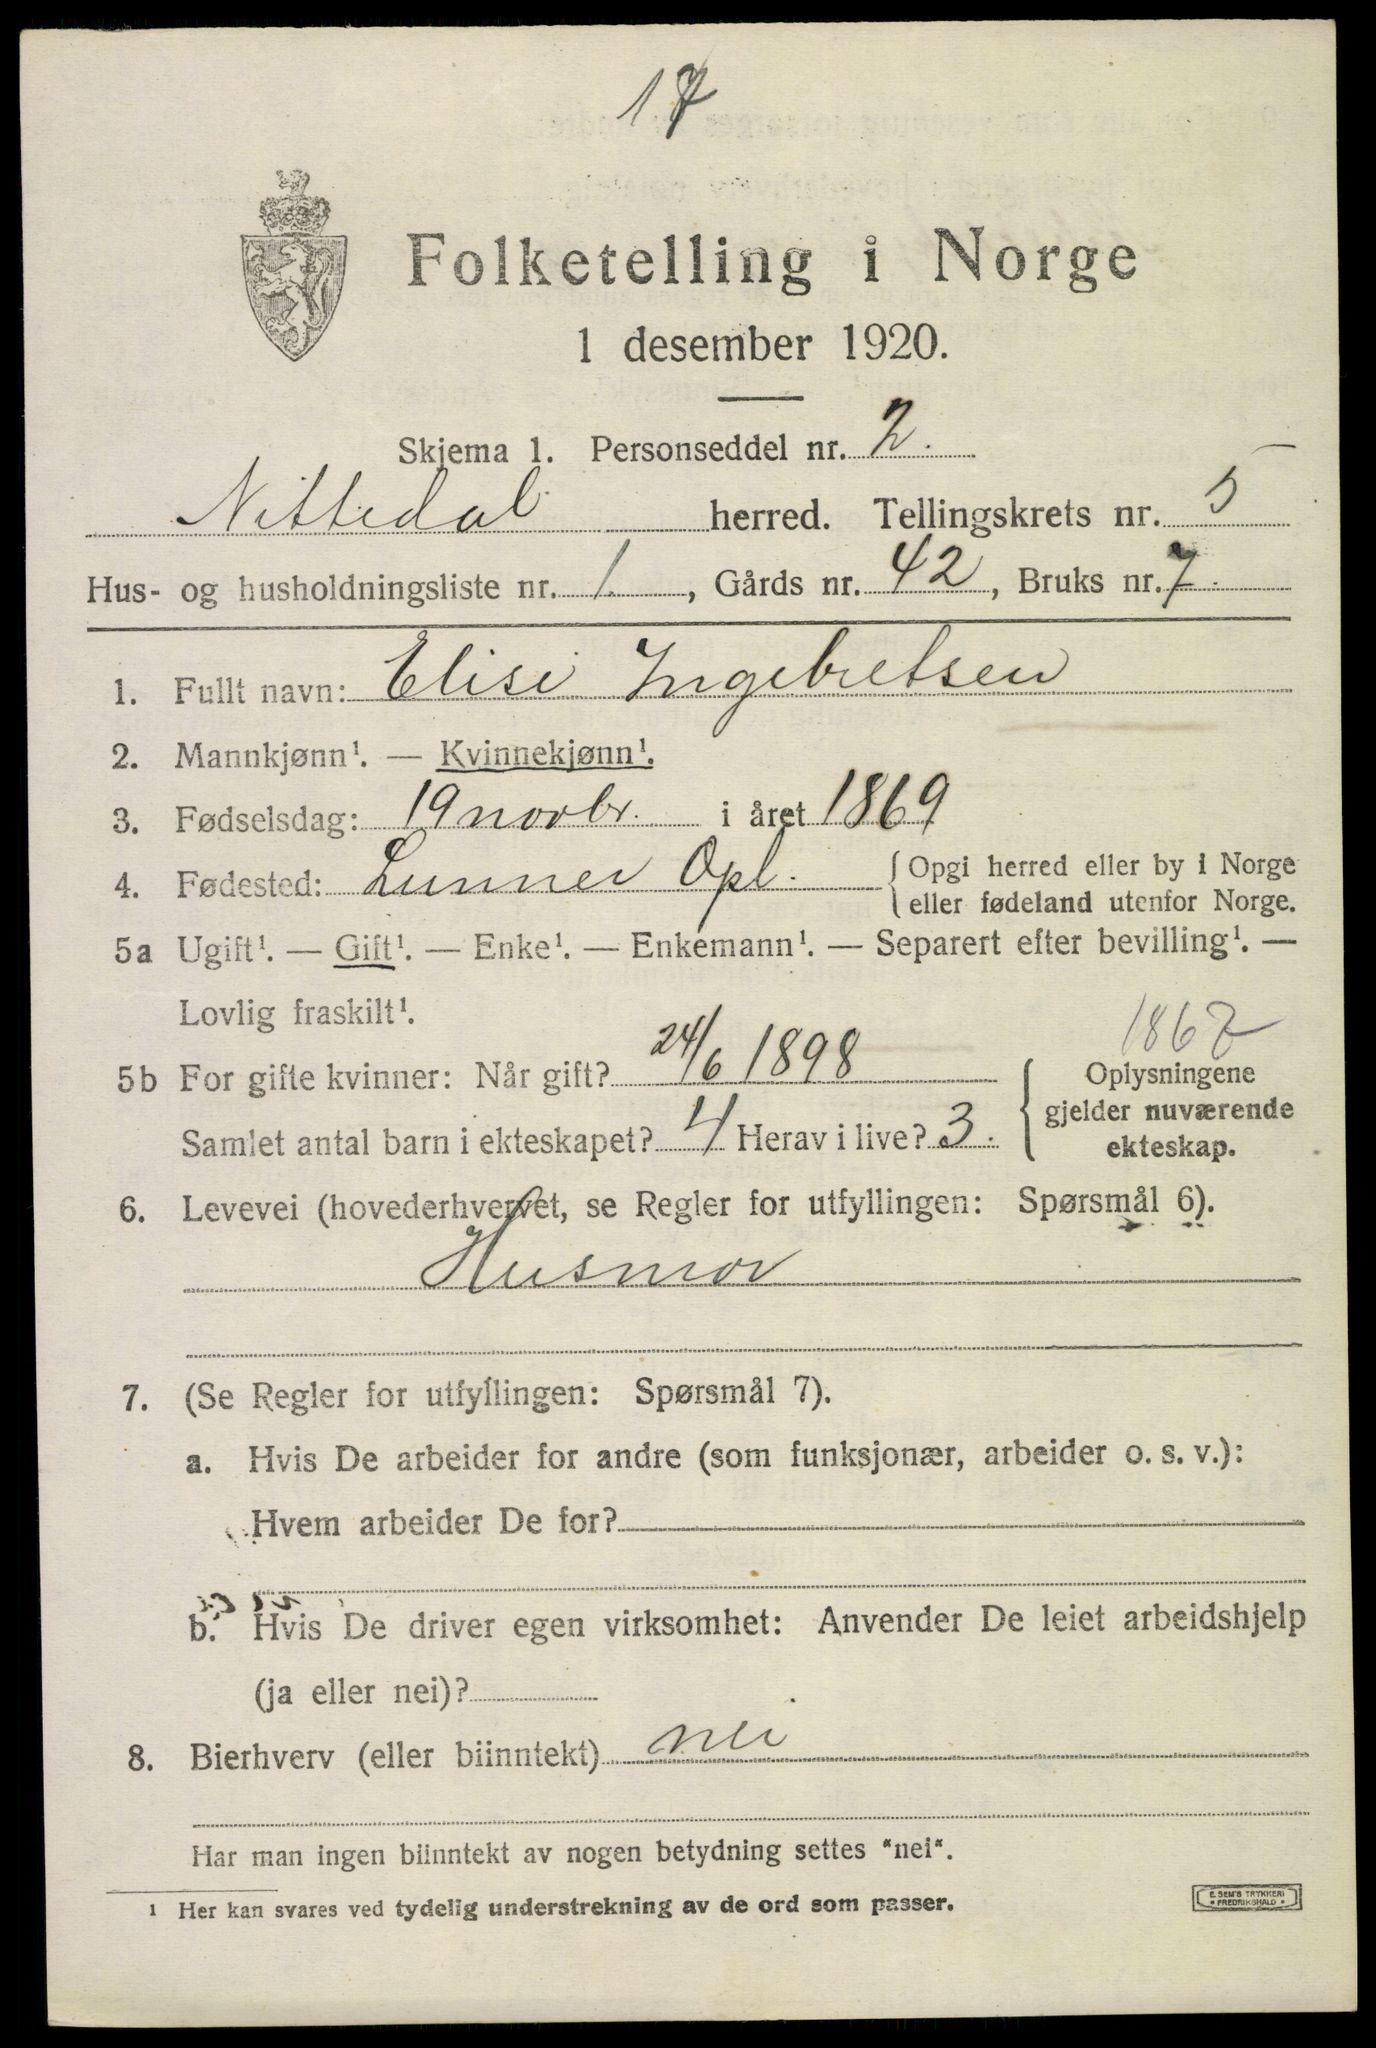 17
Folketelling i Norge
1 desember 1920.
Skjema 1. Personseddel nr. 2.
Nittedal herred. Tellingskrets nr. 5
Hus- og husholdningsliste nr. 1, Gårds nr. 42, Bruks nr. 7.
1. Fullt navn: Elise Ingebretsen
2. Mannkjønn¹. — Kvinnekjønn¹.
3. Fødselsdag: 19 novbr. i året 1869
4. Fødested: Lunner Opl. { Opgi herred eller by i Norge
eller fødeland utenfor Norge.
5a Ugift¹. — Gift¹. — Enke¹. — Enkemann¹. — Separert efter bevilling¹. —
Lovlig fraskilt¹.
1867
5b For gifte kvinner: Når gift? 24/6 1898 { Oplysningene
gjelder nuværende
Samlet antal barn i ekteskapet? 4 Herav i live? 3. ekteskap.
6. Levevei (hovederhvervet, se Regler for utfyllingen: Spørsmål 6).
Husmor
7. (Se Regler for utfyllingen: Spørsmål 7).
a. Hvis De arbeider for andre (som funksjonær, arbeider o. s. v.):
Hvem arbeider De for?
b. Hvis De driver egen virksomhet: Anvender De leiet arbeidshjelp
(ja eller nei)?
8. Bierhverv (eller biinntekt) nei
Har man ingen biinntekt av nogen betydning settes "nei".
¹ Her kan svares ved tydelig understrekning av de ord som passer.
E. SEM'S TRYKKERI
* FREDRIKSHALD *